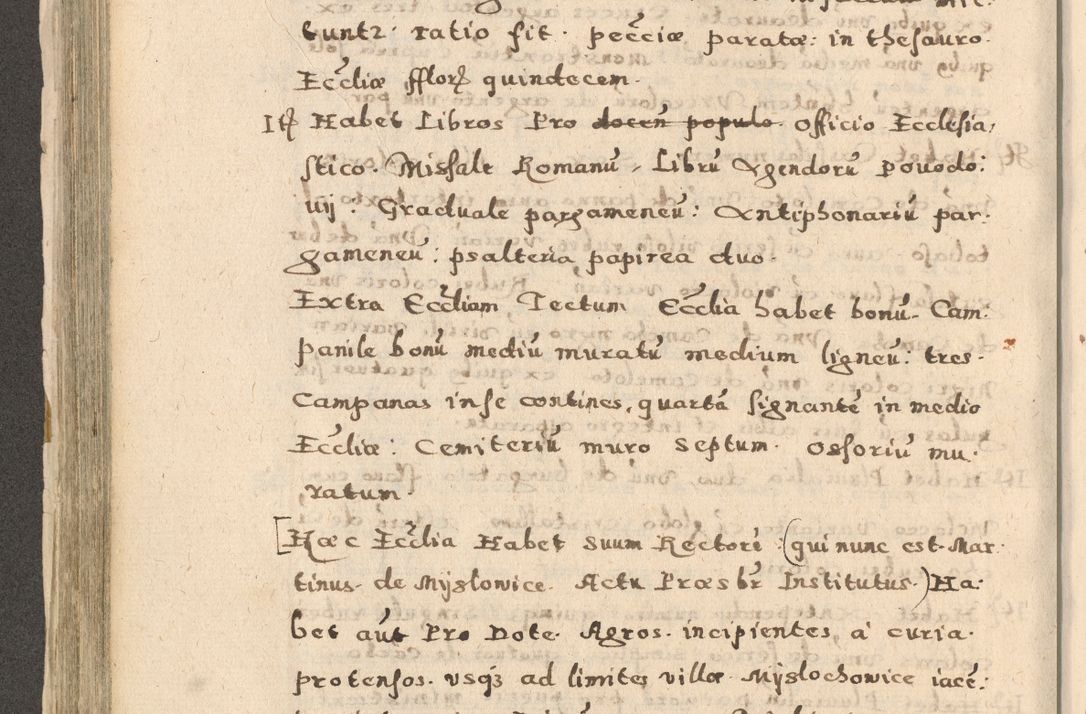 tuntr: ratio fit. pecćiæ paratæ: in thesauro
Eccliæ fflor quindecem.
Ite Habet Libros Pro docen populo officio Ecclesia,
stico. Missale Romanū, Librū Agendorū Povodo:
iiij: Graduale pargameneū: Antiphonariū par.
gameneū: psalteria papirea duo.
Extra Eccliam, Tectum Ecclia habet bonū. Cam:
panile bonū mediū muratū medium ligneū: tres
Campanas in se contines, quartā signantē in medio
Eccliæ: Cemiteriū muro septum. Ossoriū mu.
ratum.
[Hæc Ecclia Habet suum Rectorē (qui nunc est Mar.
tinus de Myslowice. Actu Præsbr Institutus.) Ha.
bet aūt Pro Dote. Agros. incipientes, a curia.
protensos. usq3 ad limites villæ Myslochowice iacē: